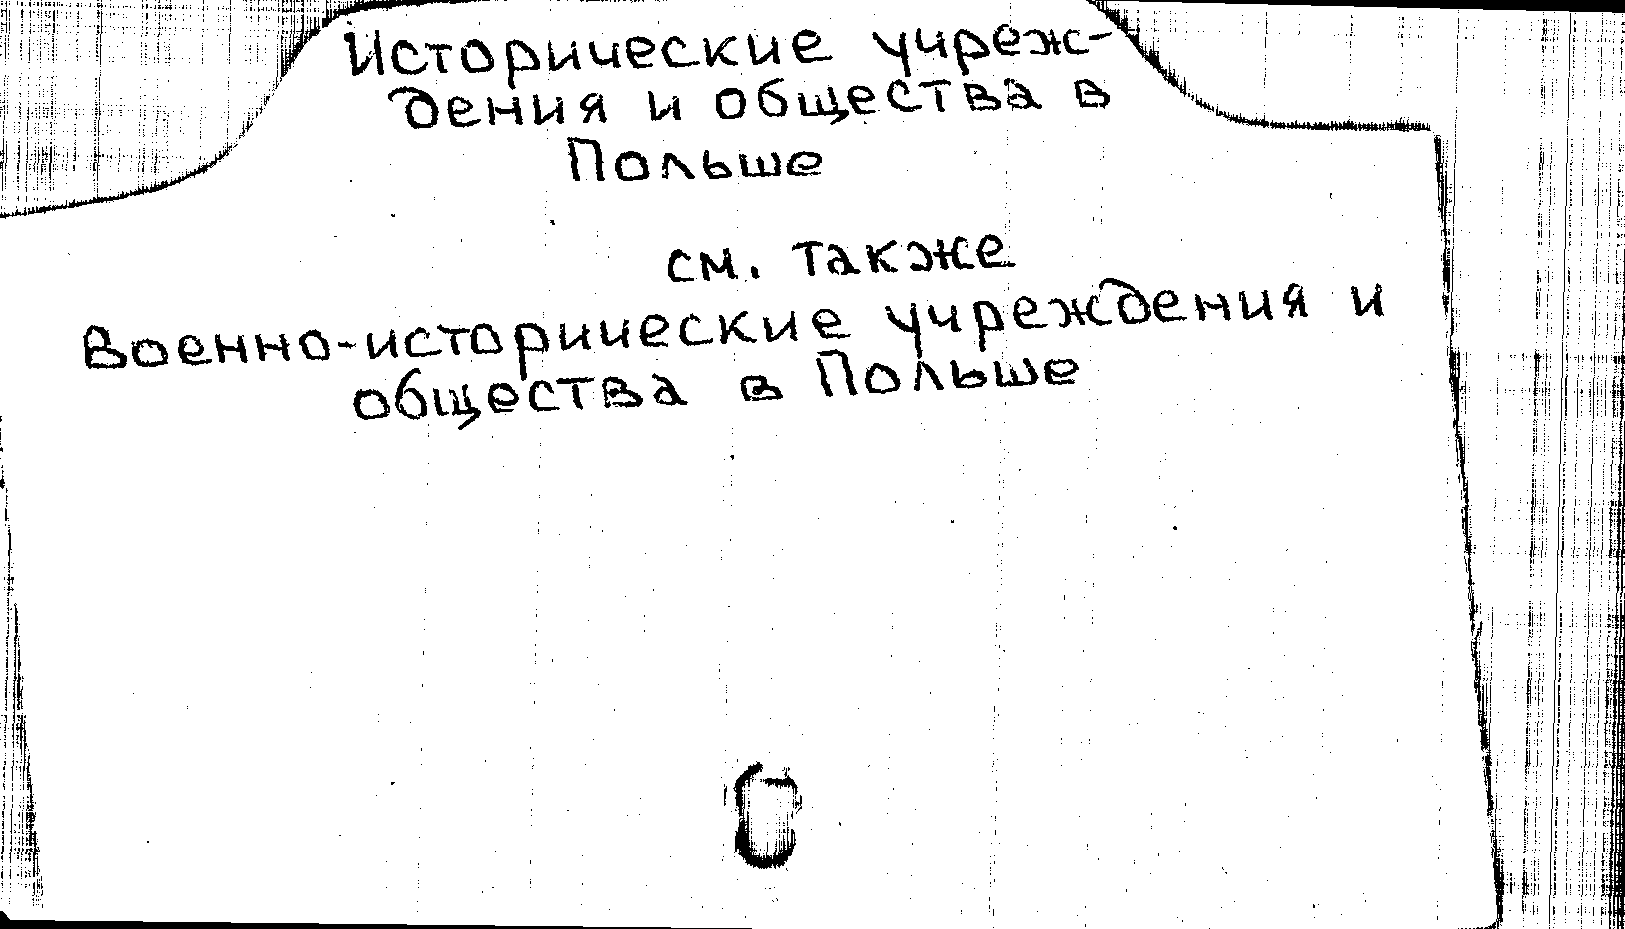 Исторические учреж-
дения и общества в
Польше
см. также
Военно-исторические учреждения и
общества в Польше